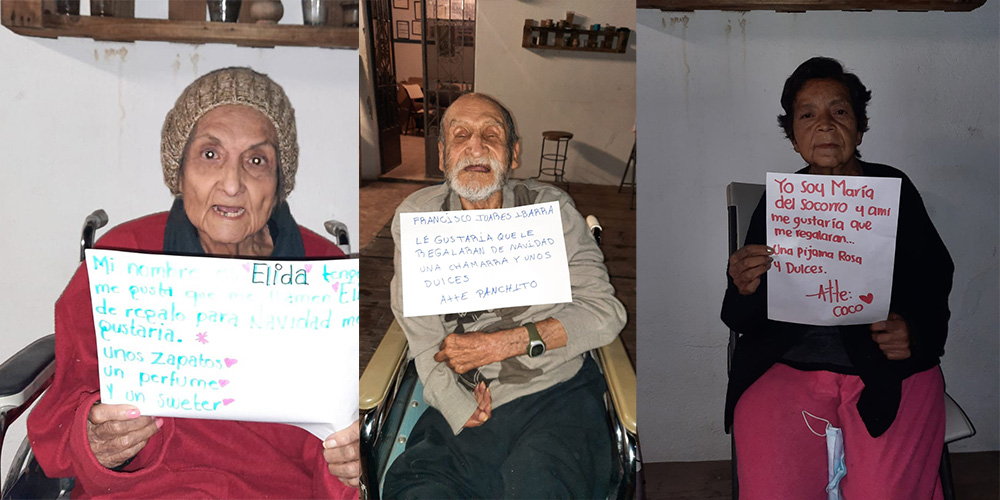 Mi nombre Elida teng
me gusta que me llamen El
de regalo para Navidad me
gustaria.
unos zapatos
un perfume
Y un sweter
FRANCISCO JUARES IBARRA
LE GUSTARIA QUE LE
REGALARAN DE NAVIDAD
UNA CHAMARRA Y UNOS
DULCES
Atte PANCHITO
Yo Soy María
del Socorro y ami
me gustaría que
me regalaran...
Una Pijama Rosa
y Dulces.
Atte:
COCO